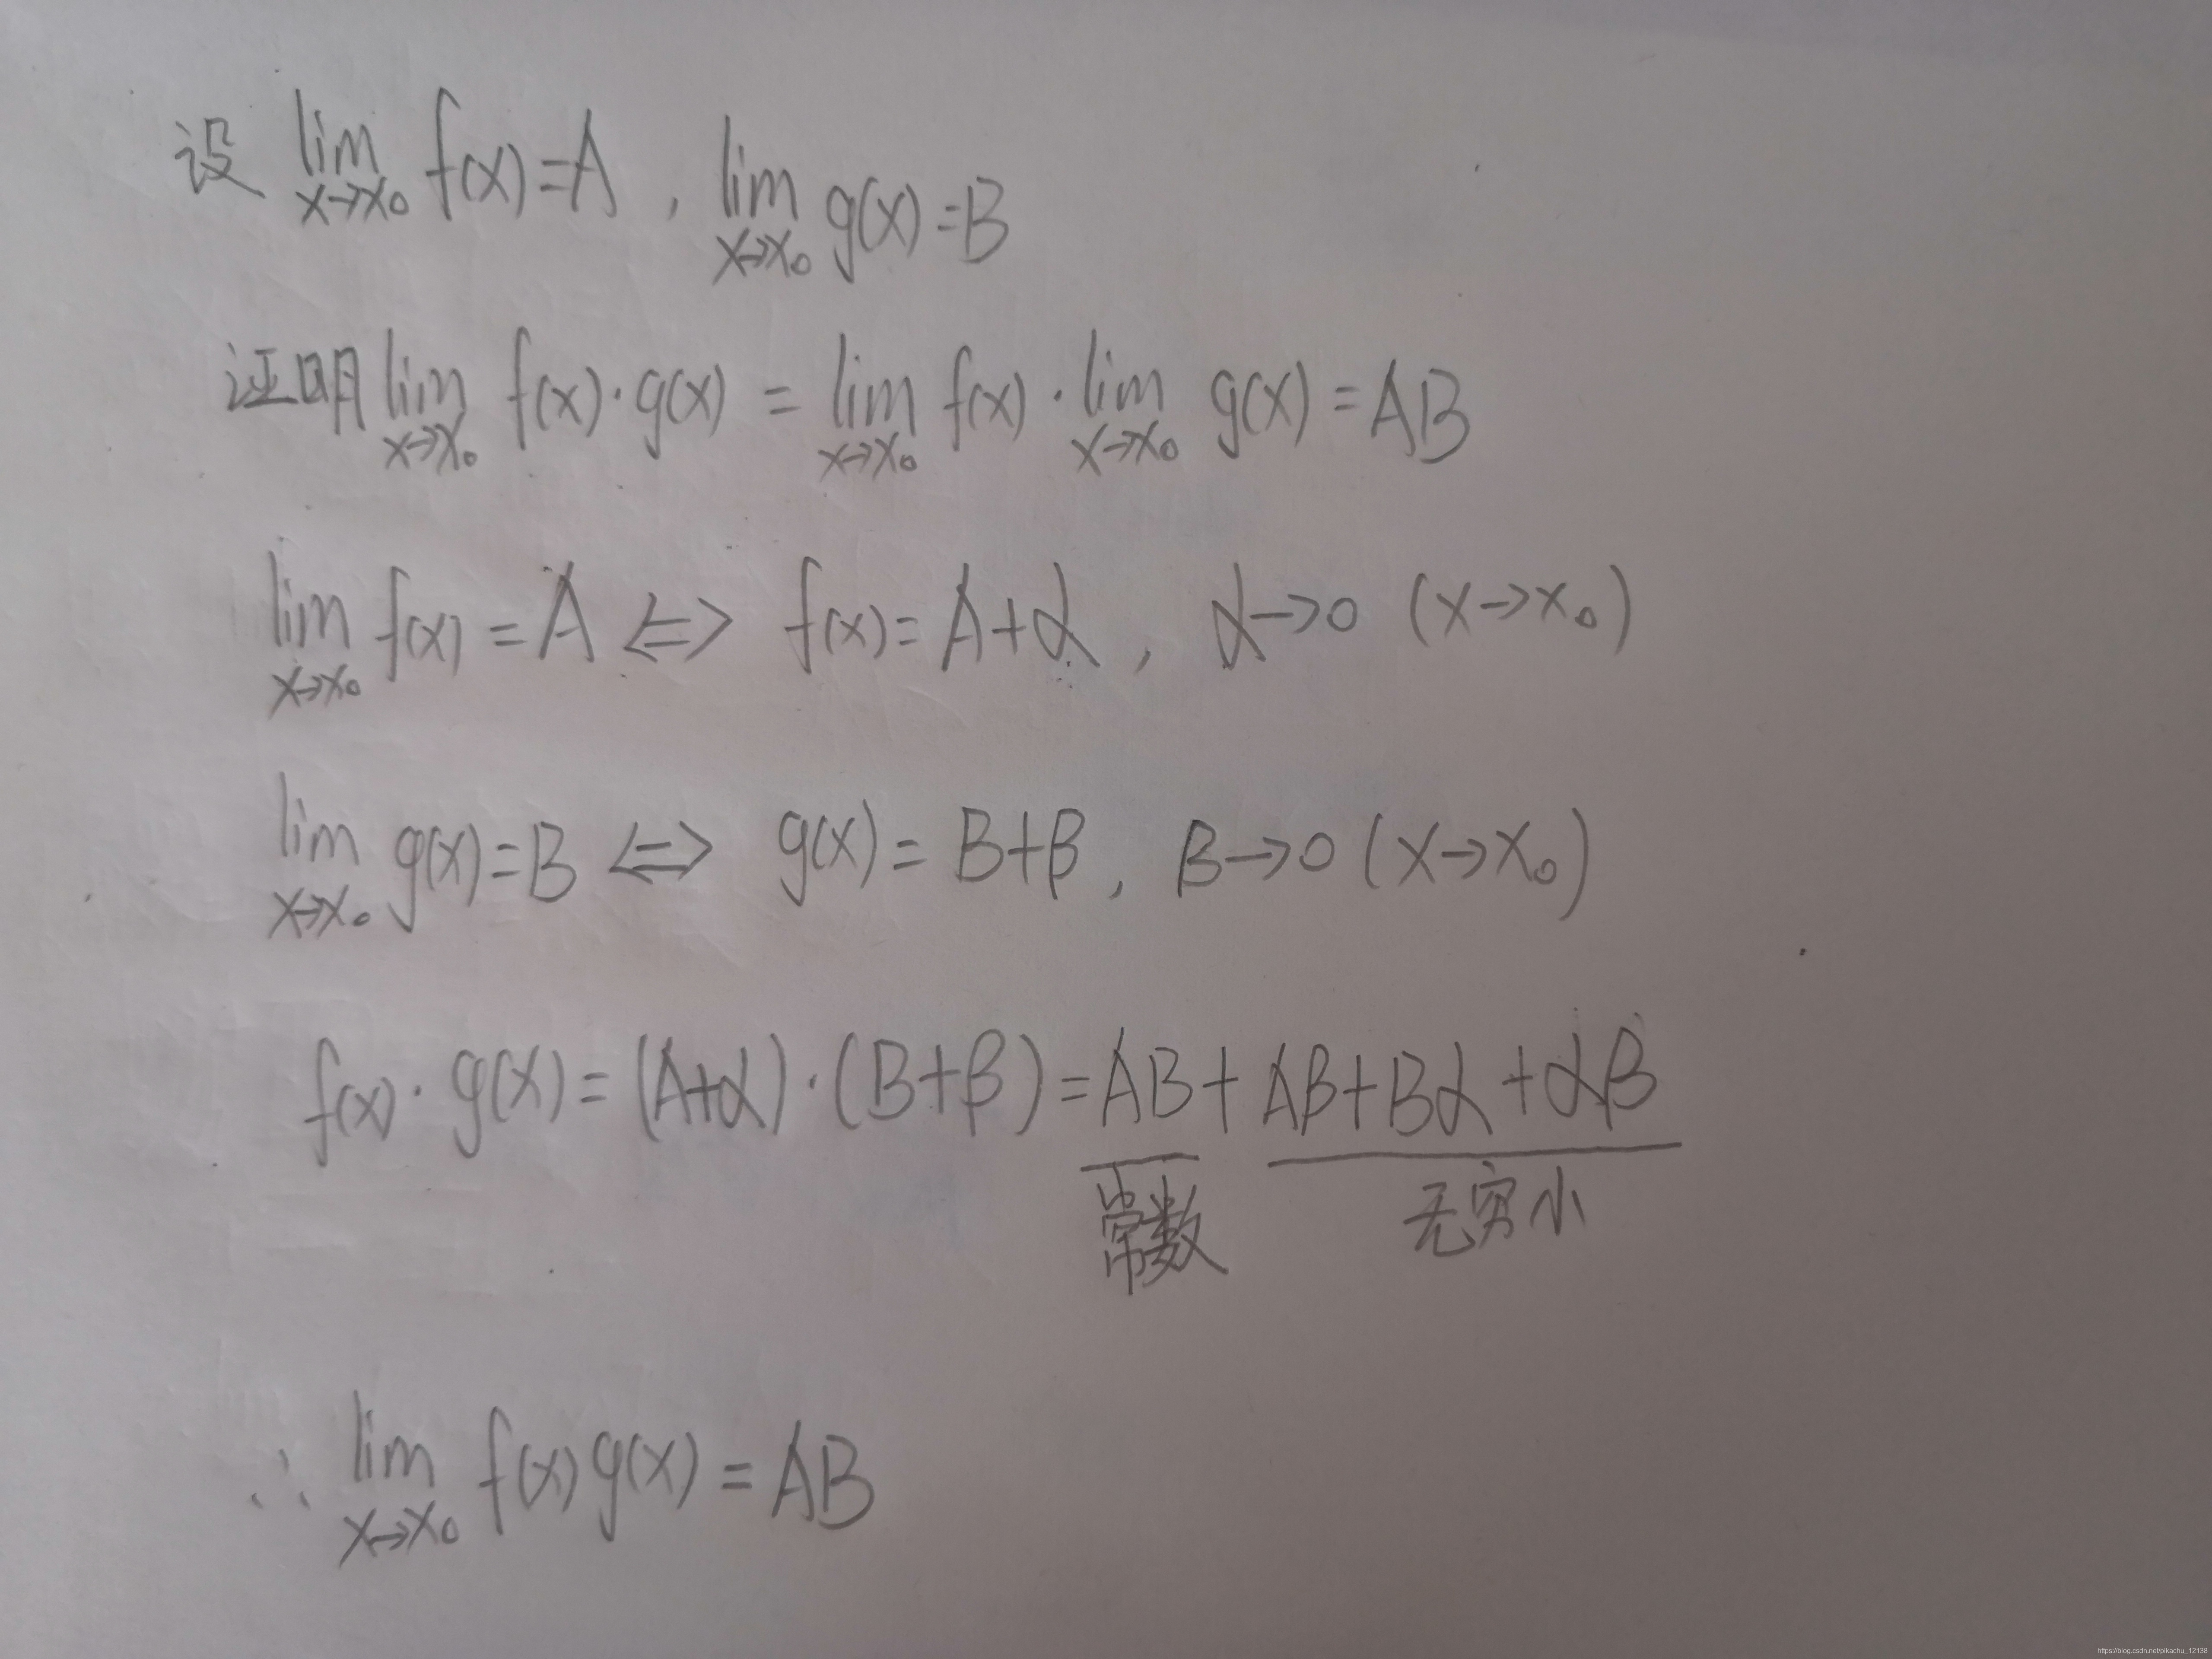 设 lim x→x₀ f(x)=A , lim x→x₀ g(x)=B
证明 lim x→x₀ f(x)·g(x) = lim x→x₀ f(x) · lim x→x₀ g(x) = AB
lim x→x₀ f(x) = A ⇔ f(x)=A+α , α→0 (x→x₀)
lim x→x₀ g(x)=B ⇔ g(x)= B+β , β→0 (x→x₀)
f(x)·g(x)=(A+α)·(B+β)=AB+Aβ+Bα+αβ
常数 无穷小
∴ lim x→x₀ f(x)g(x) = AB
https://blog.csdn.net/pikachu_12138